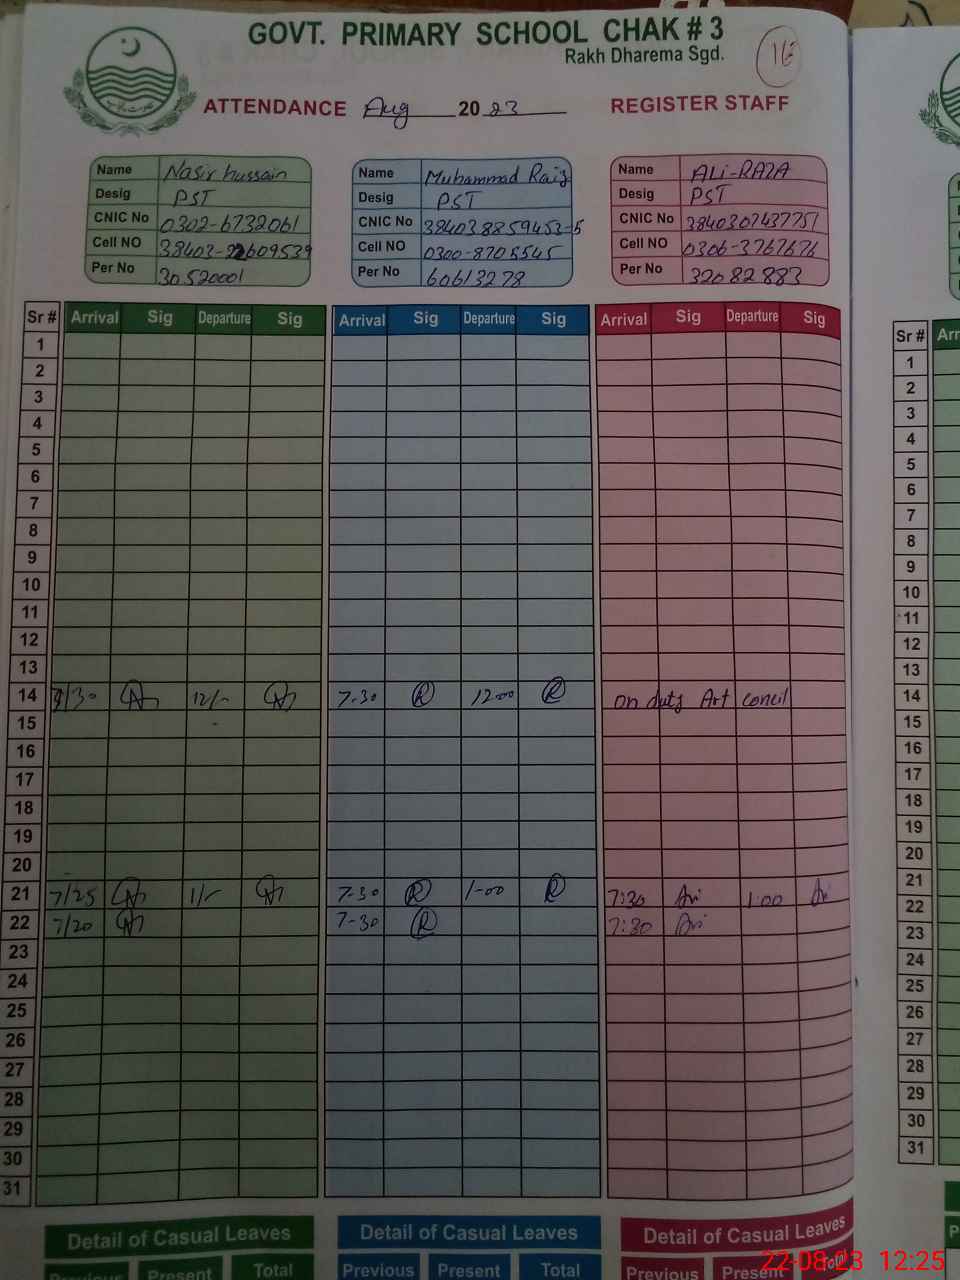 GOVT. PRIMARY SCHOOL CHAK # 3
Rakh Dharema Sgd.
16
ATTENDANCE Aug 20 23 REGISTER STAFF
Name Nasir hussain
Desig PST
CNIC No 0302-6732061
Cell NO 38403-22609539
Per No 30520001
Name Muhammad Raiz
Desig PST
CNIC No 384038859453-5
Cell NO 0300-8705545
Per No 60613278
Name ALi-RAZA
Desig PST
CNIC No 3840307437751
Cell NO 0306-3767676
Per No 32082883
Sr # Arrival Sig Departure Sig Arrival Sig Departure Sig Arrival Sig Departure Sig
1
2
3
4
5
6
7
8
9
10
11
12
13
14 7/30 12/- 7-30 R 12-00 R on duty Art concil
15
16
17
18
19
20
21 7/25 1/- 7-30 R 1-00 R 7:30 Ari 1:00 Ari
22 7/20 7-30 R 7:30 Ari
23
24
25
26
27
28
29
30
31
Detail of Casual Leaves Detail of Casual Leaves Detail of Casual Leaves
Previous Present Total Previous Present Total Previous Present Total
Sr # Arr
1
2
3
4
5
6
7
8
9
10
11
12
13
14
15
16
17
18
19
20
21
22
23
24
25
26
27
28
29
30
31
22-08-23 12:25